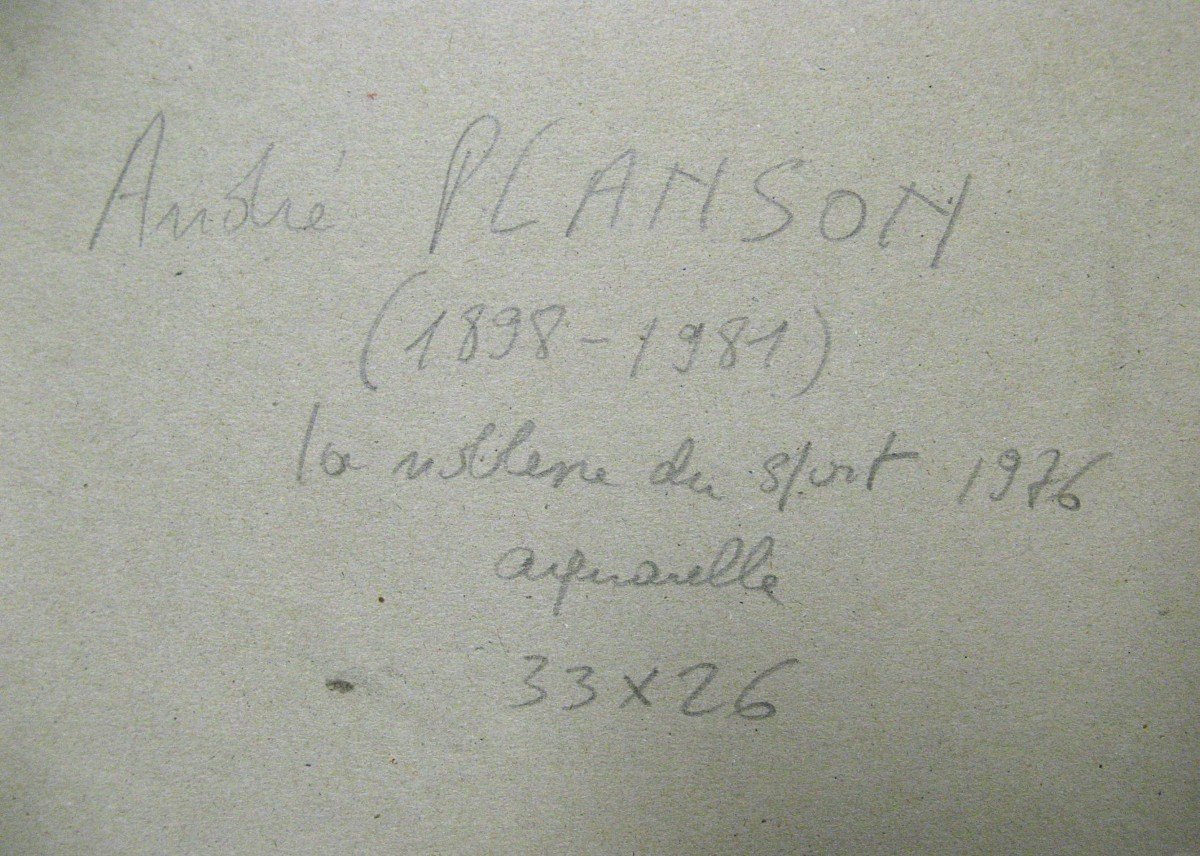 André PLANSON
(1898-1981)
la noblesse du sport 1976
aquarelle
33x26